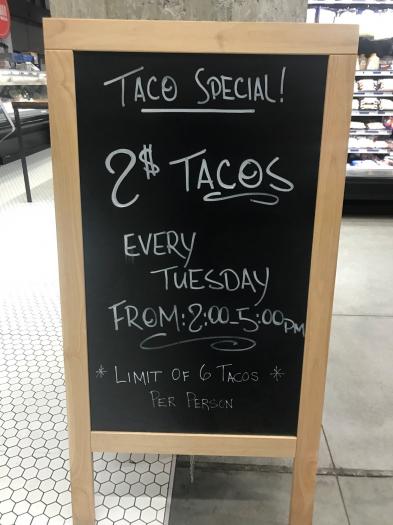 TACO SPECIAL!
2$ TACOS
EVERY
TUESDAY
FROM: 2:00-5:00PM
* LIMIT OF 6 TACOS *
PER PERSON